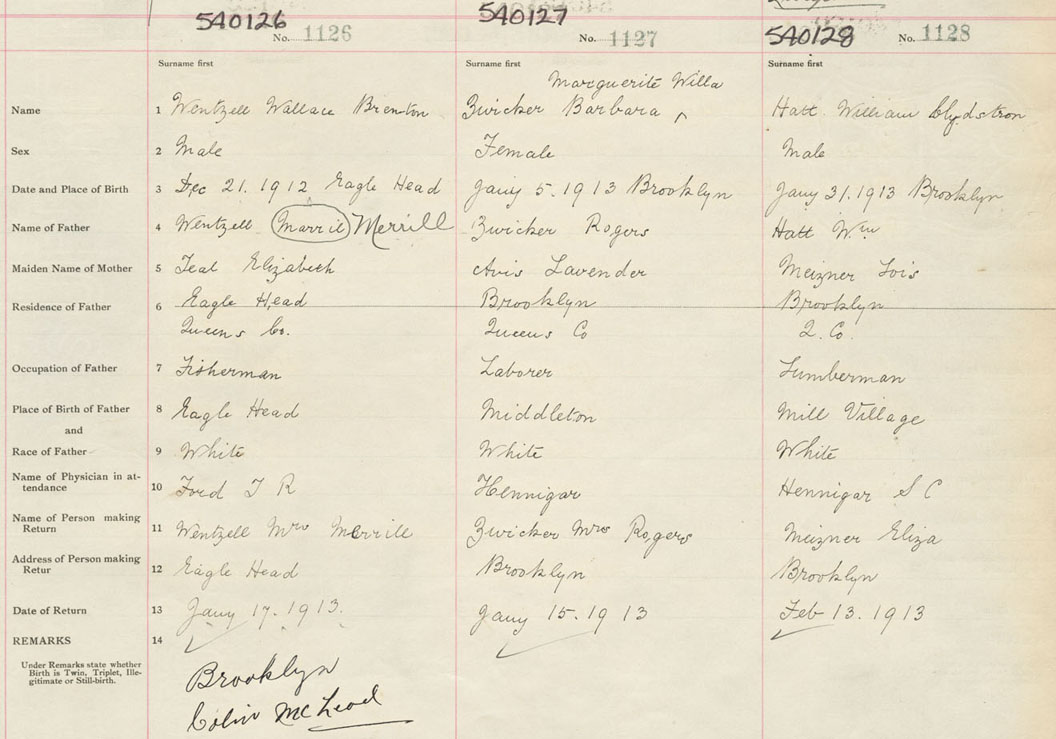 540126 No. 1126 540127 No. 1127 540128 No. 1128
Surname first Surname first Surname first
Marguerite Willa
Name 1 Wentzell Wallace Brenton Zwicker Barbara ^ Hatt William Clydstron
Sex 2 Male Female Male
Date and Place of Birth 3 Dec 21. 1912 Eagle Head Jany 5. 1913 Brooklyn Jany 31. 1913 Brooklyn
Name of Father 4 Wentzell Marril Merrill Zwicker Rogers Hatt Wm
Maiden Name of Mother 5 Teal Elizabeth Avis Lavender Meizner Lois
Residence of Father 6 Eagle Head Brooklyn Brooklyn
Queens Co. Queens Co Q. Co.
Occupation of Father 7 Fisherman Laborer Lumberman
Place of Birth of Father 8 Eagle Head Middleton Mill Village
and
Race of Father 9 White White White
Name of Physician in at-
tendance 10 Ford T R Hennigar Hennigar S C
Name of Person making
Return 11 Wentzell Mrs Merrill Zwicker Mrs Rogers Meizner Eliza
Address of Person making
Retur 12 Eagle Head Brooklyn Brooklyn
Date of Return 13 Jany 17. 1913. Jany 15. 1913 Feb 13. 1913
REMARKS 14
Under Remarks state whether
Birth is Twin, Triplet, Ille-
gitimate or Still-birth.
Brooklyn
Colin McLeod